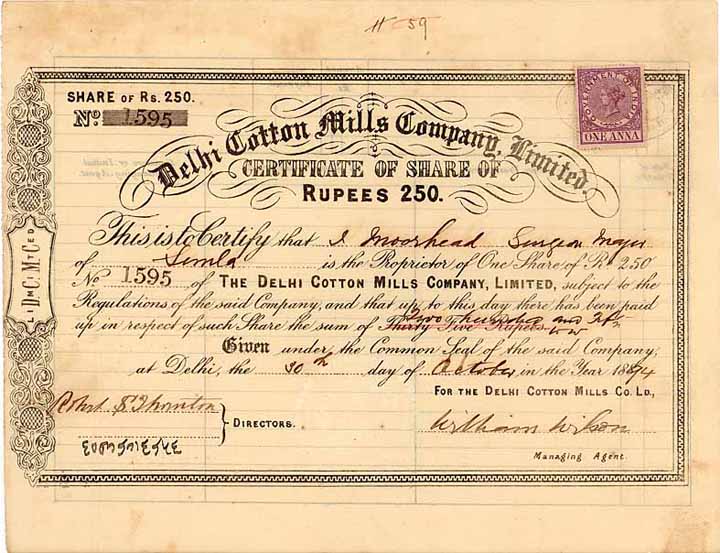 59
SHARE OF Rs. 250.
No. 1595
GOVERNMENT OF INDIA
ONE ANNA
Delhi Cotton Mills Company, Limited.
CERTIFICATE OF SHARE OF
RUPEES 250.
This is to Certify that J. Moorhead Surgeon Major
of Simla is the Proprietor of One Share of Rs 250
No 1595 of THE DELHI COTTON MILLS COMPANY, LIMITED, subject to the
Regulations of the said Company, and that up to this day there has been paid
up in respect of such Share the sum of Thirty Five Rupees Two Hundred and
Given under the Common Seal of the said Company;
at Delhi, the 30th day of October in the Year 1874
FOR THE DELHI COTTON MILLS CO. LD.,
Robt S Thornton
DIRECTORS.
William Wilson
Managing Agent.